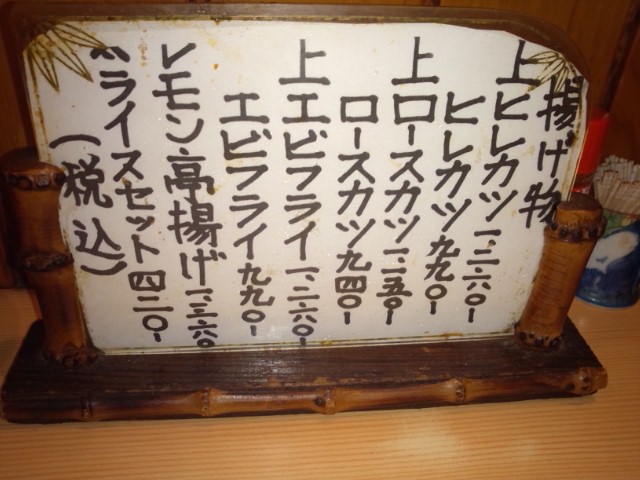 揚げ物
上ヒレカツ一、二六〇-
ヒレカツ九九〇-
上ロースカツ一、二五〇-
ロースカツ九四〇-
上エビフライ一、二六〇-
エビフライ九九〇-
レモン高揚げ一、三六〇-
ライスセット四二〇-
(税込)